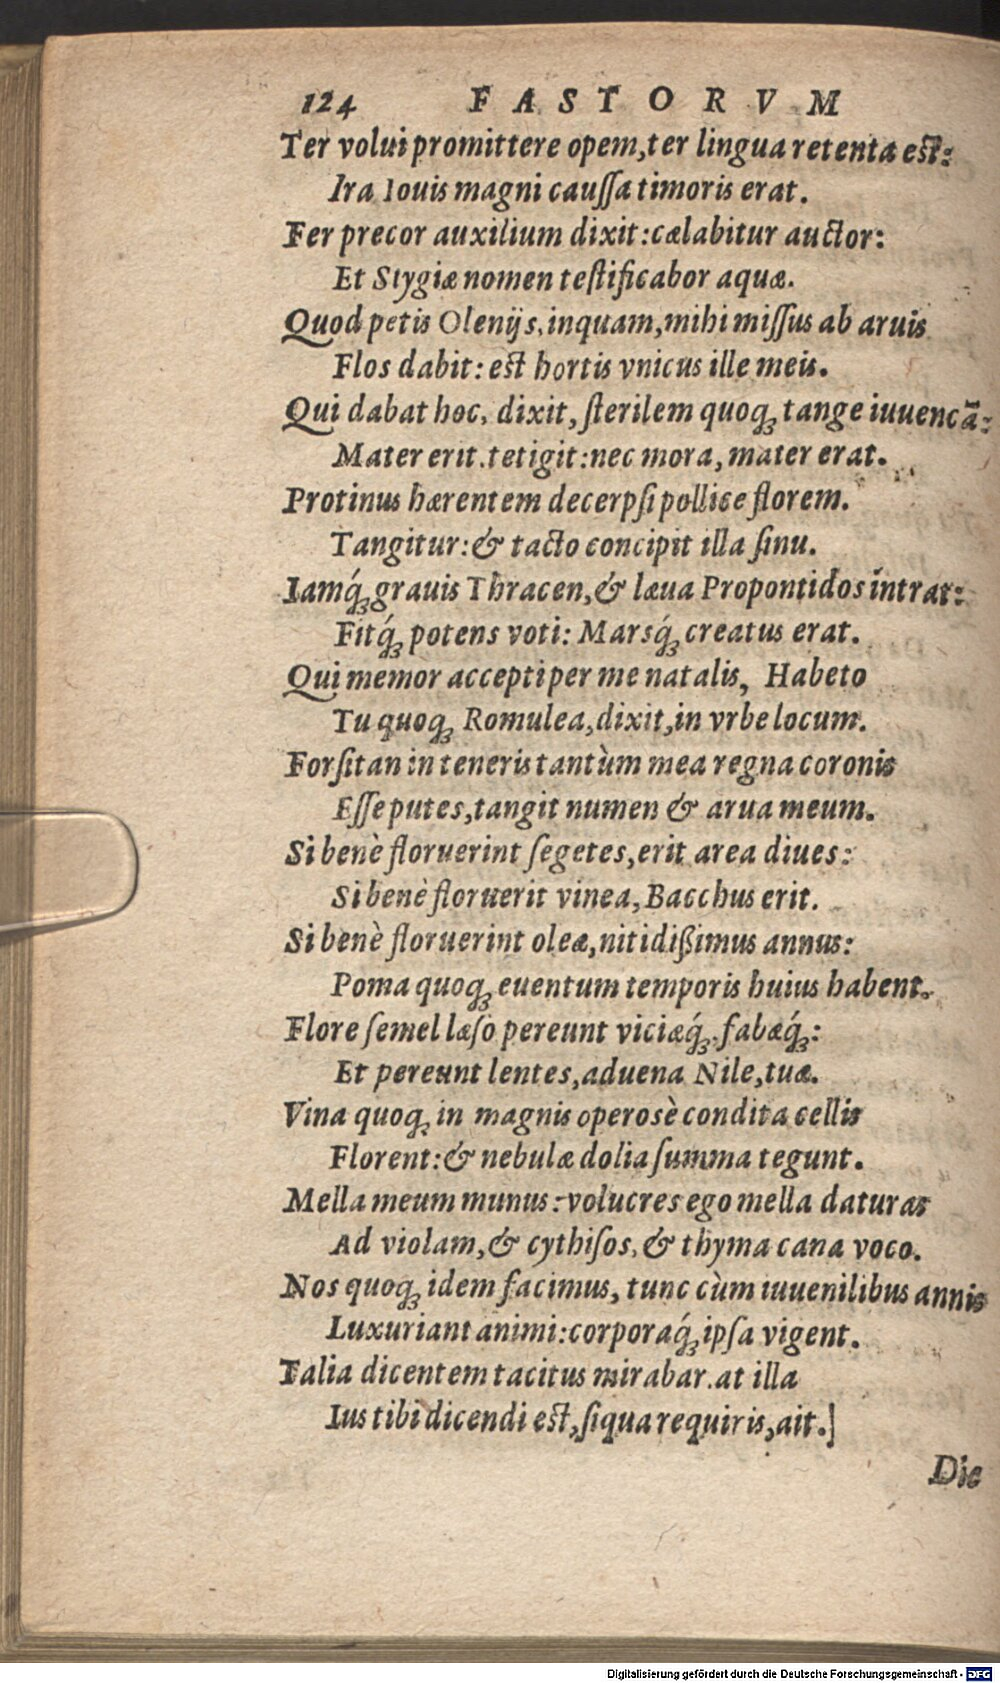 124 FASTORVM
Ter volui promittere opem, ter lingua retenta est:
Ira Iouis magni caussa timoris erat.
Fer precor auxilium dixit: cælabitur auctor:
Et Stygiæ nomen testificabor aquæ.
Quod petis Olenijs, inquam, mihi missus ab aruis
Flos dabit: est hortis vnicus ille meis.
Qui dabat hoc, dixit, sterilem quoq; tange iuuencã:
Mater erit. tetigit: nec mora, mater erat.
Protinus hærentem decerpsi pollice florem.
Tangitur: & tacto concipit illa sinu.
Iamq́; grauis Thracen, & læua Propontidos intrat:
Fitq́; potens voti: Marsq́; creatus erat.
Qui memor accepti per me natalis, Habeto
Tu quoq; Romulea, dixit, in vrbe locum.
Forsitan in teneris tantùm mea regna coronis
Esse putes, tangit numen & arua meum.
Si benè floruerint segetes, erit area diues:
Si benè floruerit vinea, Bacchus erit.
Si benè floruerint oleæ, nitidißimus annus:
Poma quoq; euentum temporis huius habent.
Flore semel læso pereunt viciæq́;. fabæq́;:
Et pereunt lentes, aduena Nile, tuæ.
Vina quoq; in magnis operosè condita cellis
Florent: & nebulæ dolia summa tegunt.
Mella meum munus: volucres ego mella daturas
Ad violam, & cythisos, & thyma cana voco.
Nos quoq; idem facimus, tunc cùm iuuenilibus annis
Luxuriant animi: corporaq́; ipsa vigent.
Talia dicentem tacitus mirabar. at illa
Ius tibi dicendi est, si qua requiris, ait.]
Dic
Digitalisierung gefördert durch die Deutsche Forschungsgemeinschaft - DFG